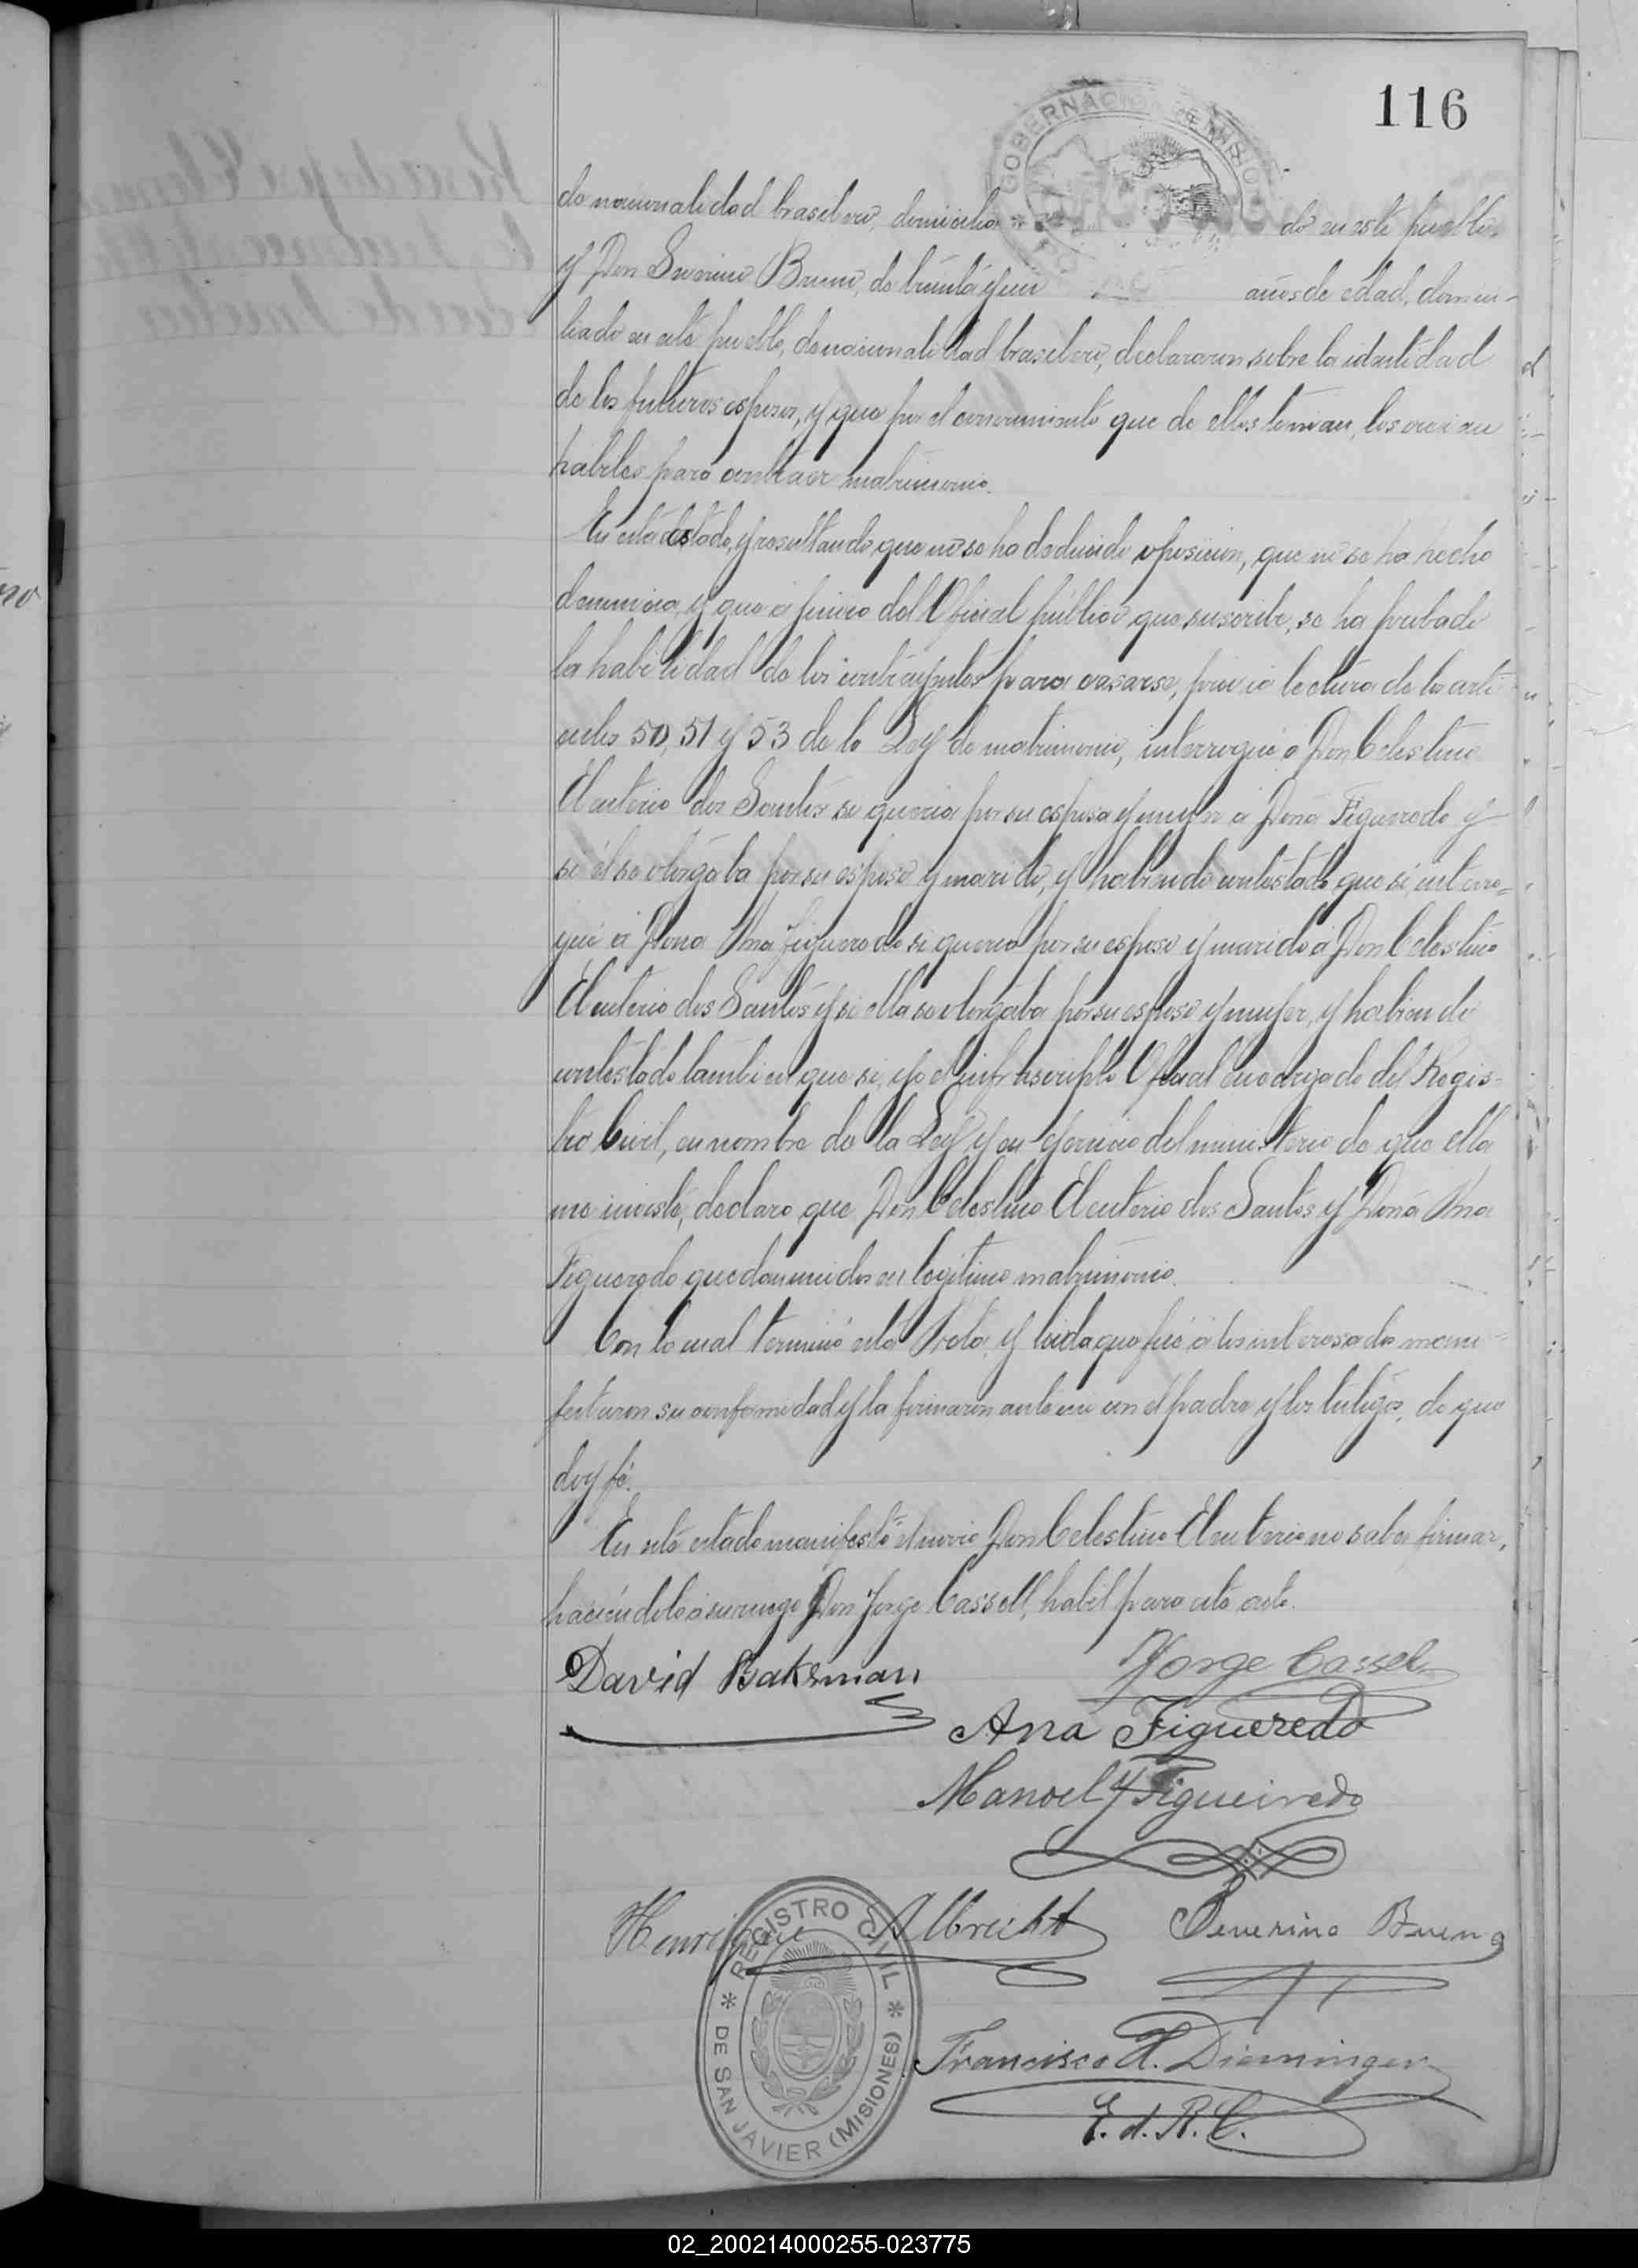 116
GOBERNACION DE MISIONES
de nacionalidad brasilero, domicilia do en este pueblo
y Don Severino Bueno, de treinta y un años de edad, domici-
liado en este pueblo, de nacionalidad brasilero, declararon sobre la identidad
de los futuros esposos, y que por el conocimiento que de ellos tenian, los creian
habiles para contraer matrimonio.
En este estado, y resultando que no se ha deducido oposicion, que no se ha hecho
denuncia, y que a juicio del Oficial público que suscribe, se ha probado
la habilidad de los contrayentes para casarse, previa lectura de los arti
culos 50, 51 y 53 de la Ley de matrimonio, interrogué a Don Celestino
Eleuterio dos Santos si queria por su esposa y mujer á Doña Figueredo y
si él se otorgaba por su esposo y marido, y habiendo contestado que sí, interro=
gué á Dona Ana Figueredo si queria por su esposo y marido á Don Celestino
Eleuterio dos Santos y si ella se otorgaba por su esposa y mujer, y habiendo
contestado tambien que si, yo el infrascripto Oficial encargado del Regis-
tro Civil, en nombre de la Ley y en ejercicio del ministerio de que ella
me inviste, declaro que Don Celestino Eleuterio dos Santos y Dona Ana
Figueredo quedan unidos en legitimo matrimonio.
Con lo cual terminó esta Acta, y leida que fué á los interesados mani-
festaron su conformidad y la firmaron ante mi con el padre y los testigos, de que
doy fé.
En este estado manifestó el novio Don Celestino Eleuterio no saber firmar,
haciéndolo a su ruego Don Jorge Cassell, habil para este acto.
David Baksman Jorge Cassel
Ana Figueredo
Manoel Y Figueiredo
Henrique Albrecht Severino Bueno
Francisco A. Dieminger
E. d. R. C.
REGISTRO CIVIL
* DE SAN JAVIER (MISIONES) *
02_200214000255-023775